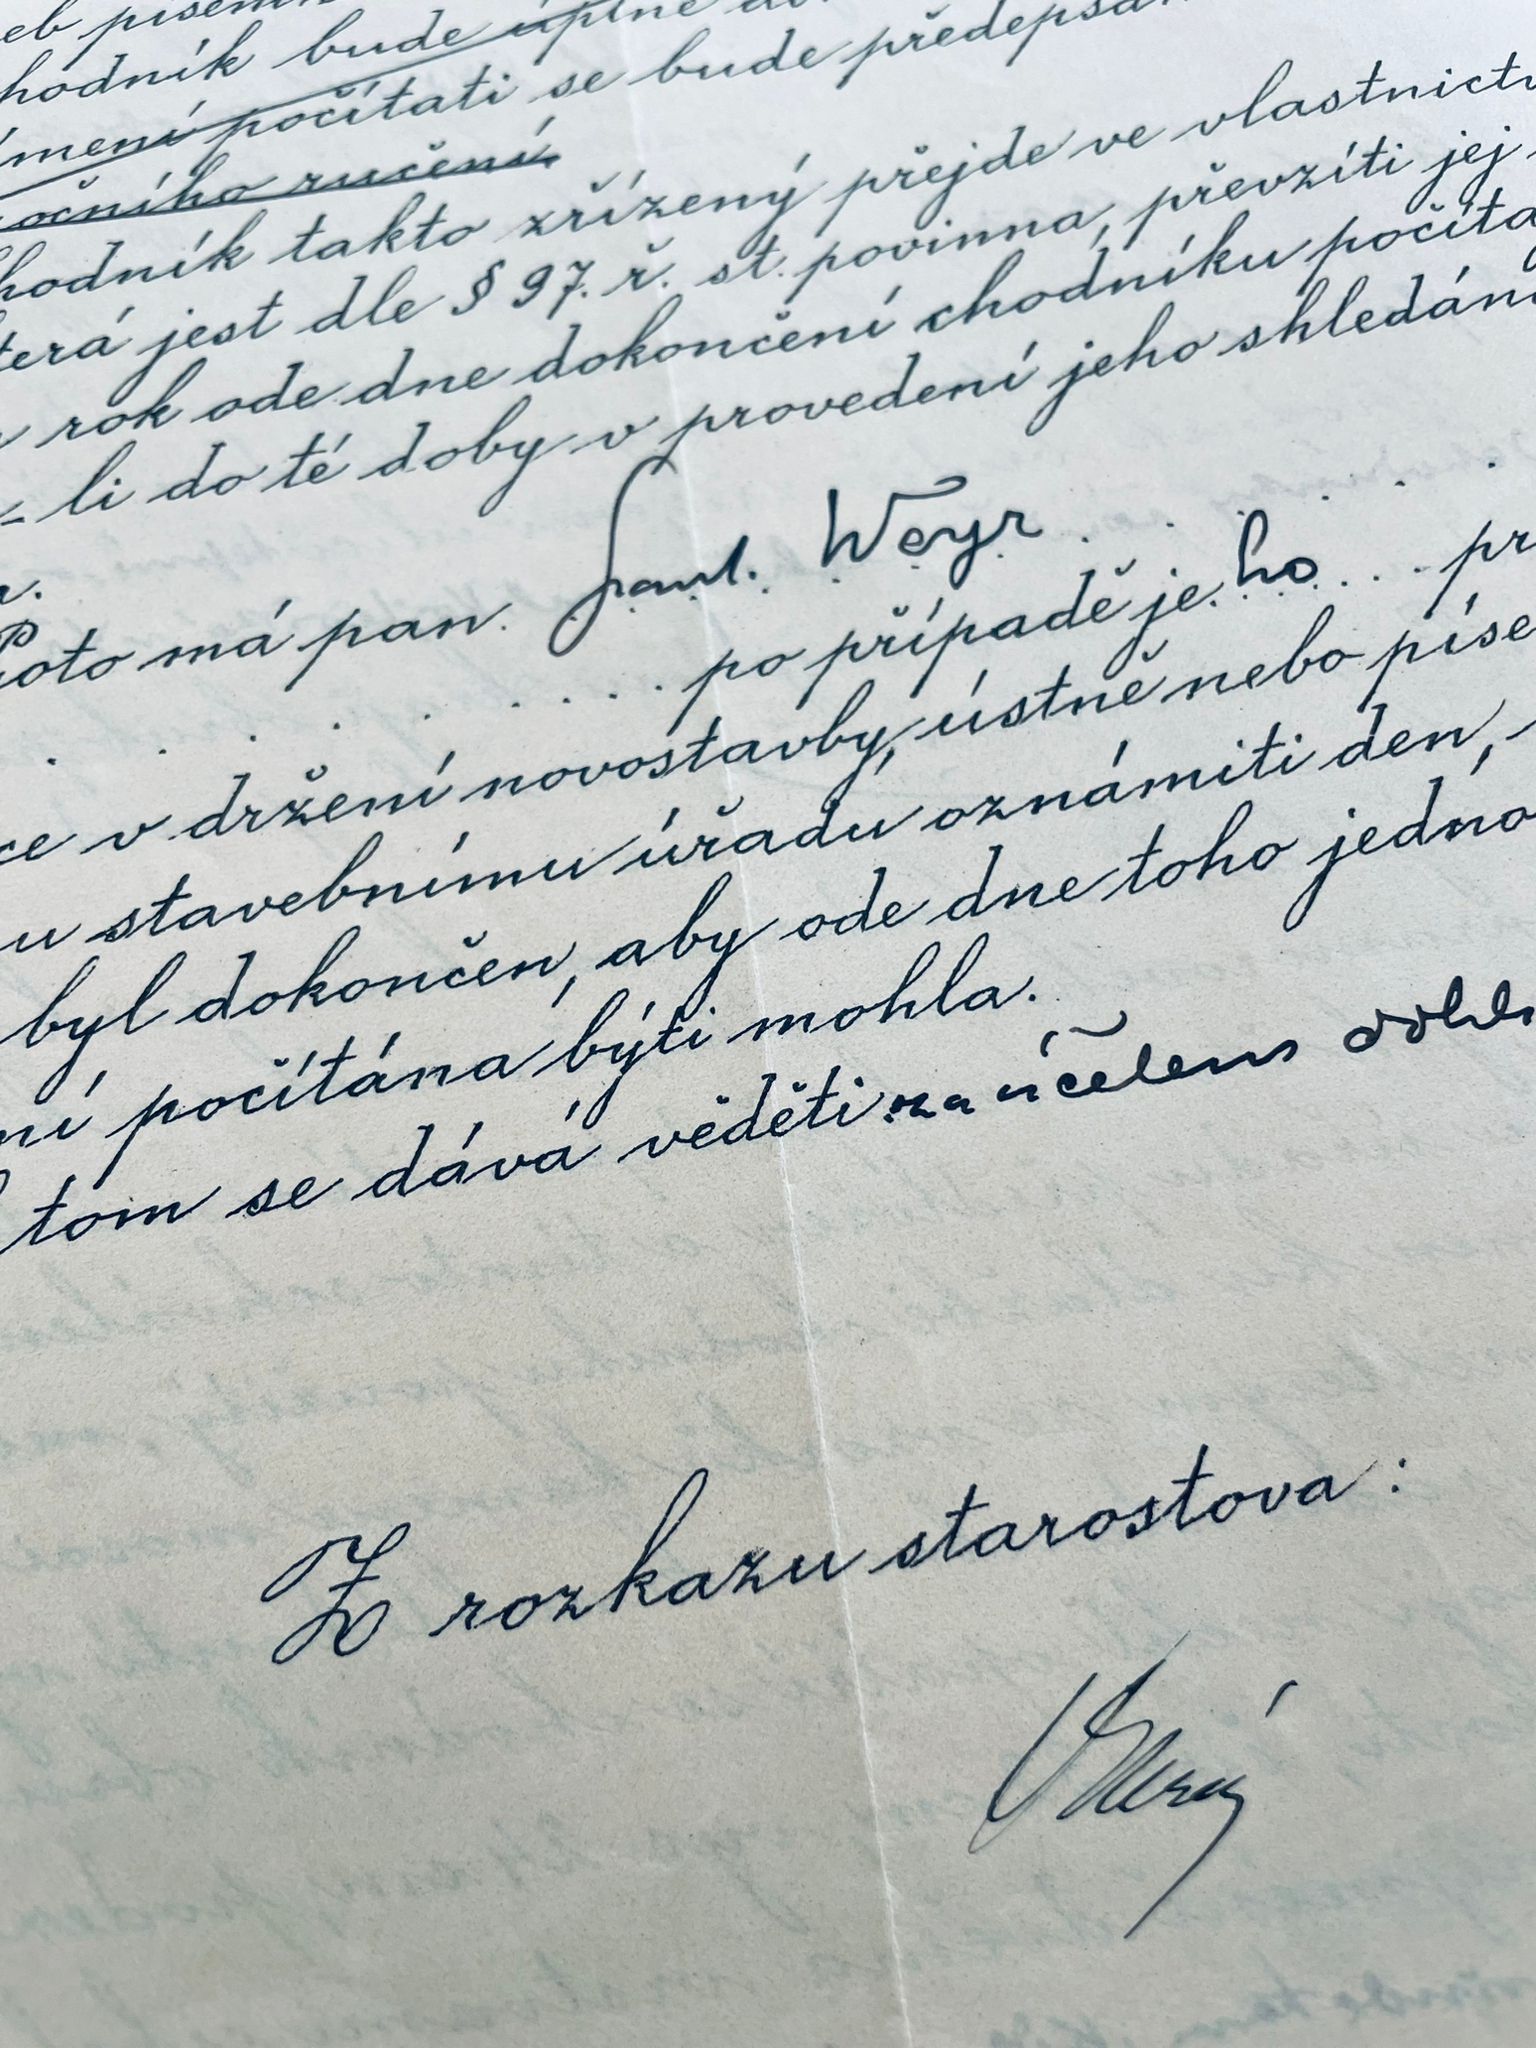 hodník bude úplně
počítati se bude
ručení
hodník takto zřízený přejde ve vlastnictv
terá jest dle § 97. ř. st. povinna, převzíti jej
rok ode dne dokončení chodníku počíta
- li do té doby v provedení jeho shledán
Proto má pan. Paul. Weyr
po případě je. ho pr
ce v držení novostavby, ústně nebo píse
u stavebnímu úřadu oznámiti den,
byl dokončen, aby ode dne toho jedno
ní počítána býti mohla.
tom se dává věděti za účelem
Z rozkazu starostova: